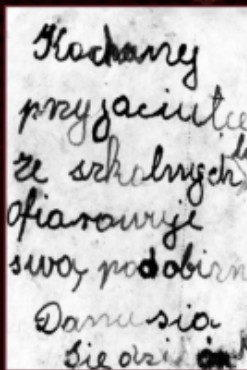 Kochanej
przyjaciółce
ze szkolnych
ofiarowuje
swą podobizn
Danusia